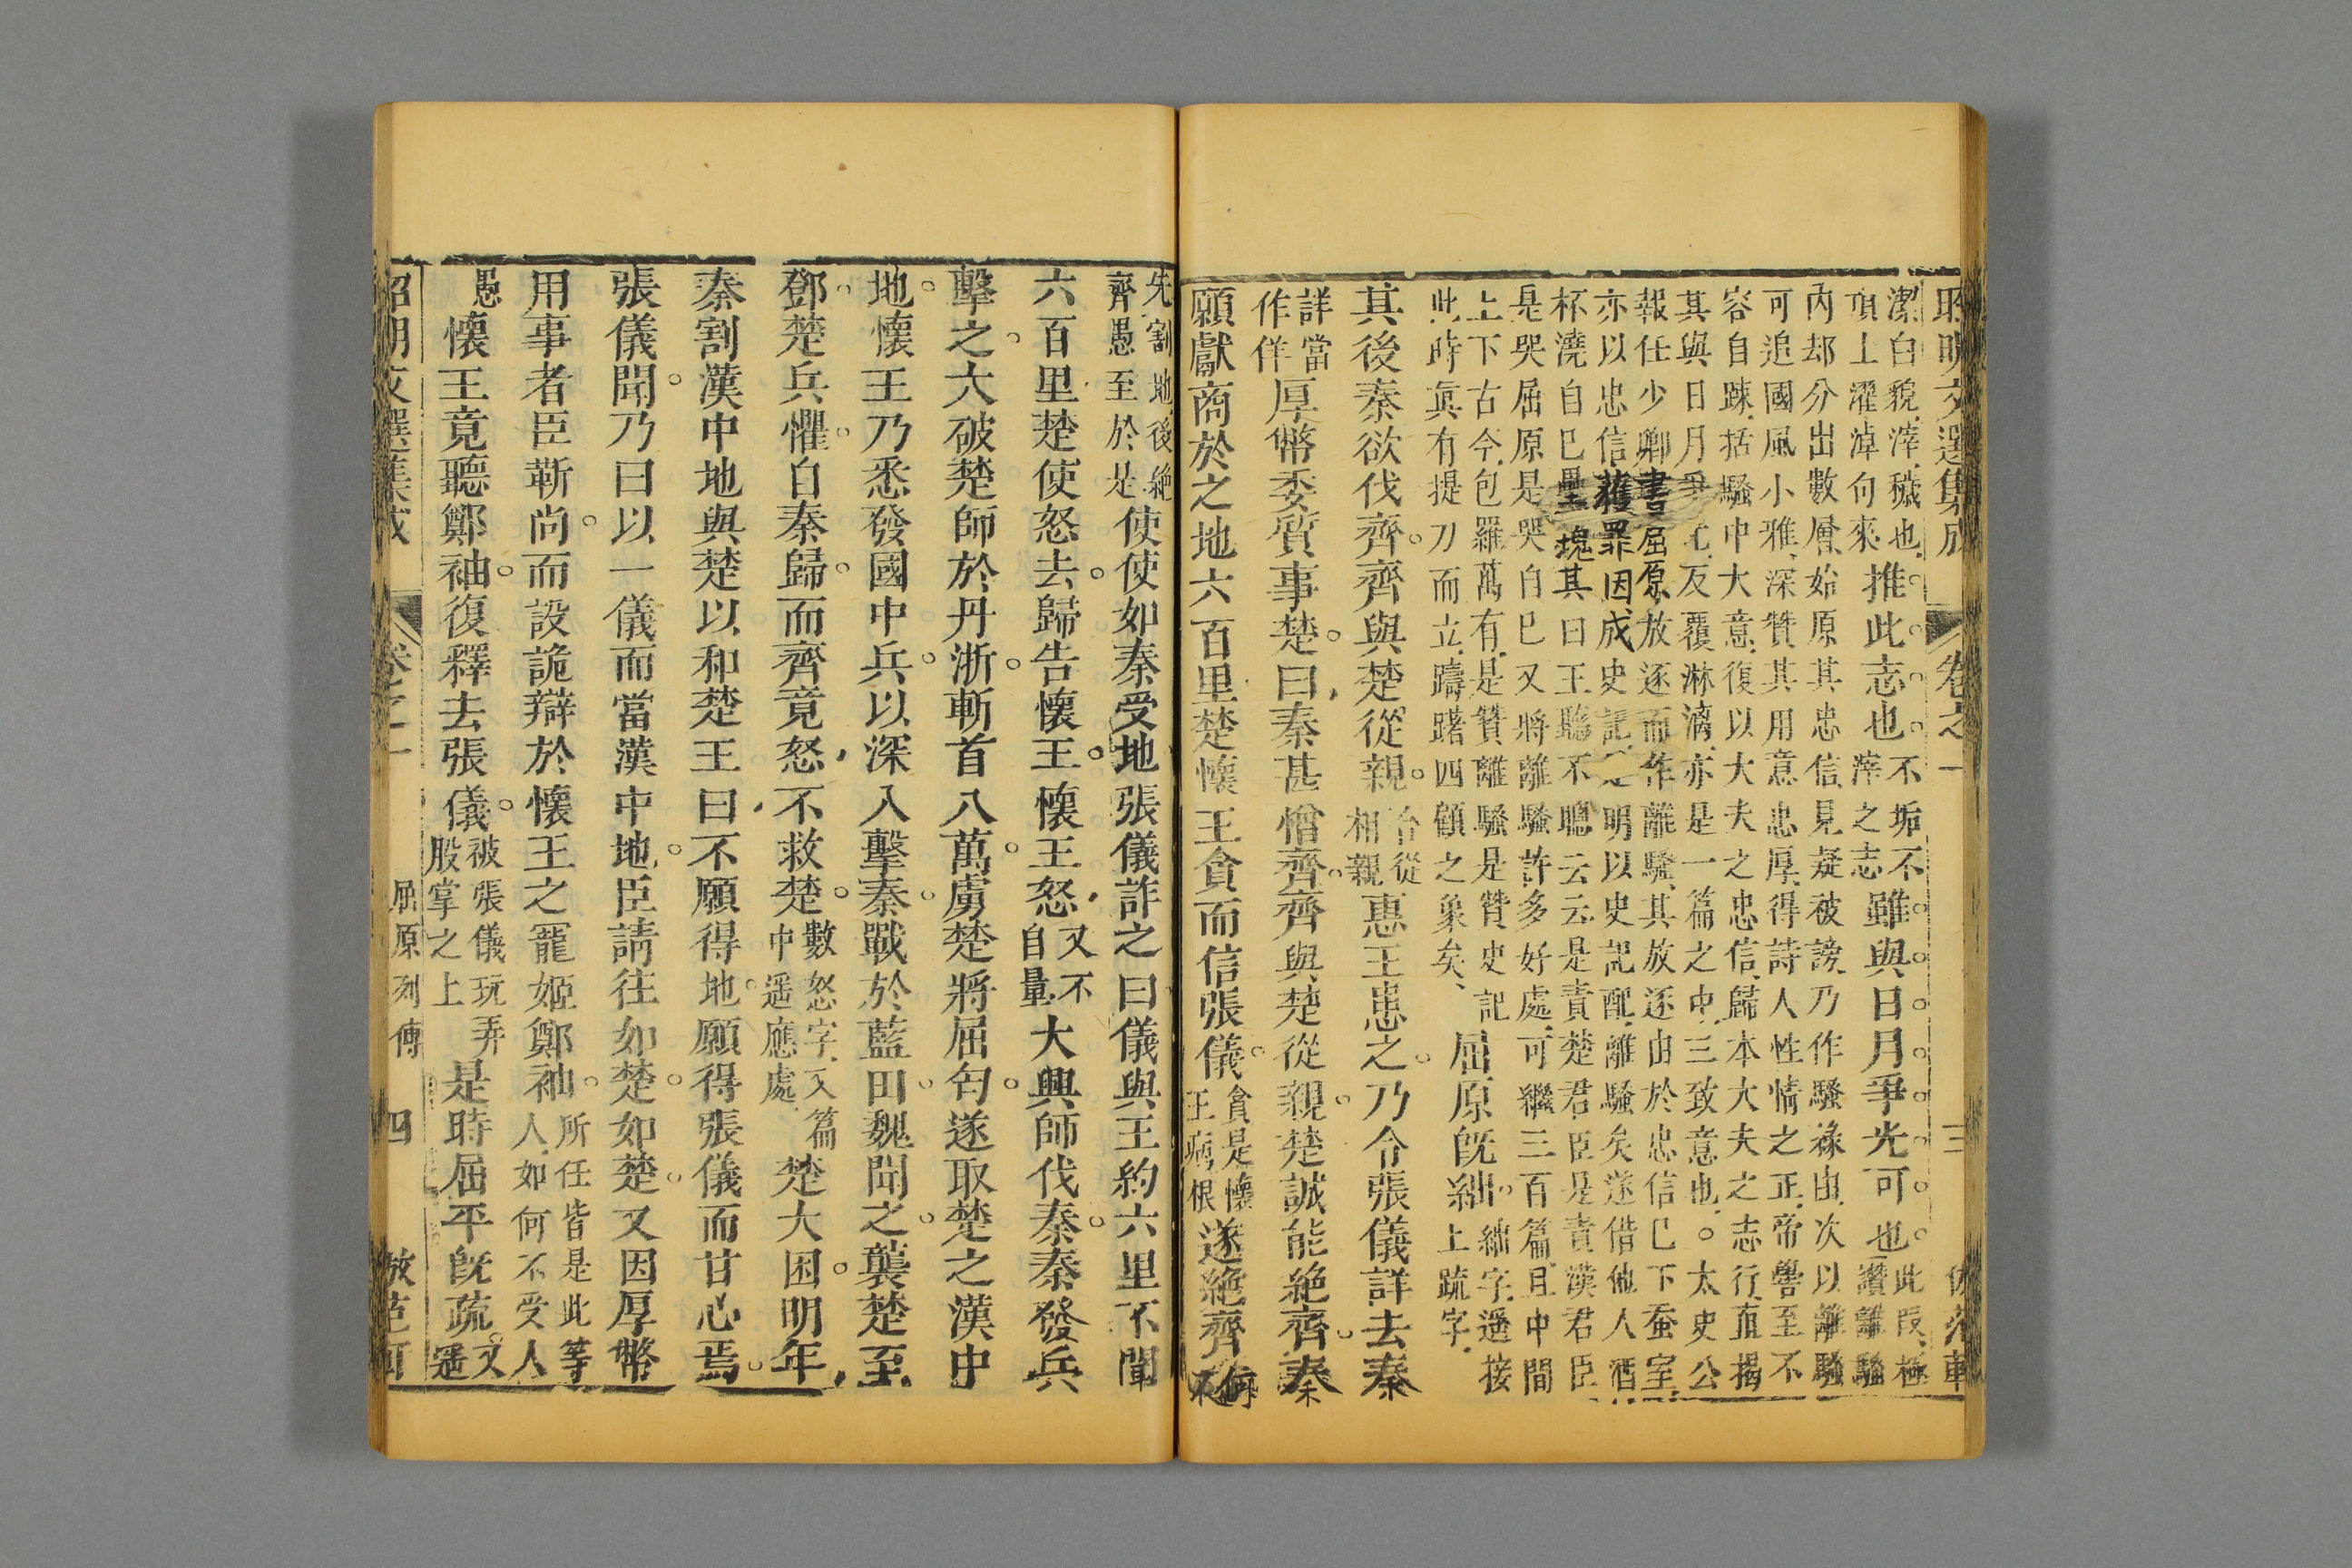 昭明文選集成 卷之一 三
潔白貌滓穢也推此志也不垢不雖與日月爭光可也此段極
頂上濯淖句來滓之志讚離騷
內却分出數層始原其忠信見疑被謗乃作騷緣由次以離騷
可追國風小雅深贊其用意忠厚得詩人性情之正帝嚳至不
容自踈括騷中大意復以大夫之忠信歸本大夫之志行直揭
其與日月爭光反覆淋漓亦是一篇之中三致意也太史公
報任少卿書屈原放逐而作離騷其放逐由於忠信已下蚕室
亦以忠信獲罪因成史記是明以史記配離騷矣遂借他人酒
杯澆自巳壘塊其曰王聽不聰云云是責楚君臣是責漢君臣
是哭屈原是哭自巳又將離騷許多好處可繼三百篇且中間
上下古今包羅萬有是贊離騷是贊史記屈原旣絀絀字遥接
此時眞有提刀而立躊躇四顧之象矣上疏字
其後秦欲伐齊齊與楚從親合從相親惠王患之乃令張儀詳去秦
詳當作佯厚幣委質事楚曰秦甚憎齊齊與楚從親楚誠能絶齊秦
願獻商於之地六百里楚懷王貪而信張儀貪是懷王病根遂絶齊
先割地後絶齊愚至於是使使如秦受地張儀詐之曰儀與王約六里不聞
六百里楚使怒去歸告懷王懷王怒又不自量大興師伐秦秦發兵
擊之大破楚師於丹淅斬首八萬虜楚將屈匄遂取楚之漢中
地懷王乃悉發國中兵以深入擊秦戰於藍田魏聞之襲楚至
鄧楚兵懼自秦歸而齊竟怒不救楚數怒字又篇中遥應處楚大困明年
秦割漢中地與楚以和楚王曰不願得地願得張儀而甘心焉
張儀聞乃曰以一儀而當漢中地臣請往如楚如楚又因厚幣
用事者臣靳尚而設詭辯於懷王之寵姬鄭袖所任皆是此等人如何不受人
愚懷王竟聽鄭袖復釋去張儀被張儀玩弄股掌之上是時屈平旣疏又遥
昭明文選集成 卷之一 屈原列傳 四